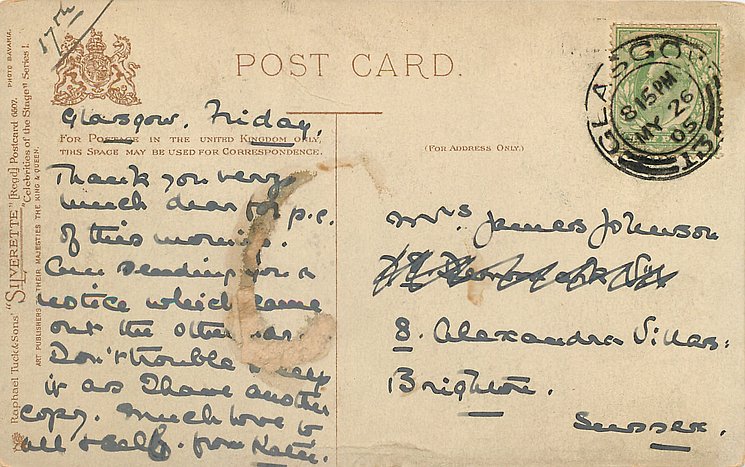 17th
POST CARD.
GLASGOW
8 15 PM
MY 26
05
Glasgow. Friday.
FOR POSTAGE IN THE UNITED KINGDOM ONLY,
THIS SPACE MAY BE USED FOR CORRESPONDENCE.
(FOR ADDRESS ONLY.)
Thank you very
much dear for p.c.
of this morning.
Am sending you a
notice which came
out the other
Don't trouble
it as I have another
copy. Much love to
all & self. from Katie.
Mrs James Johnson
8. Alexandra Villas:
Brighton.
Sussex.
Raphael Tuck & Sons' "SILVERETTE" [Regd] Postcard 6607. PHOTO BAVARIA.
"Celebrities of the Stage" Series I.
ART PUBLISHERS TO THEIR MAJESTIES THE KING & QUEEN.